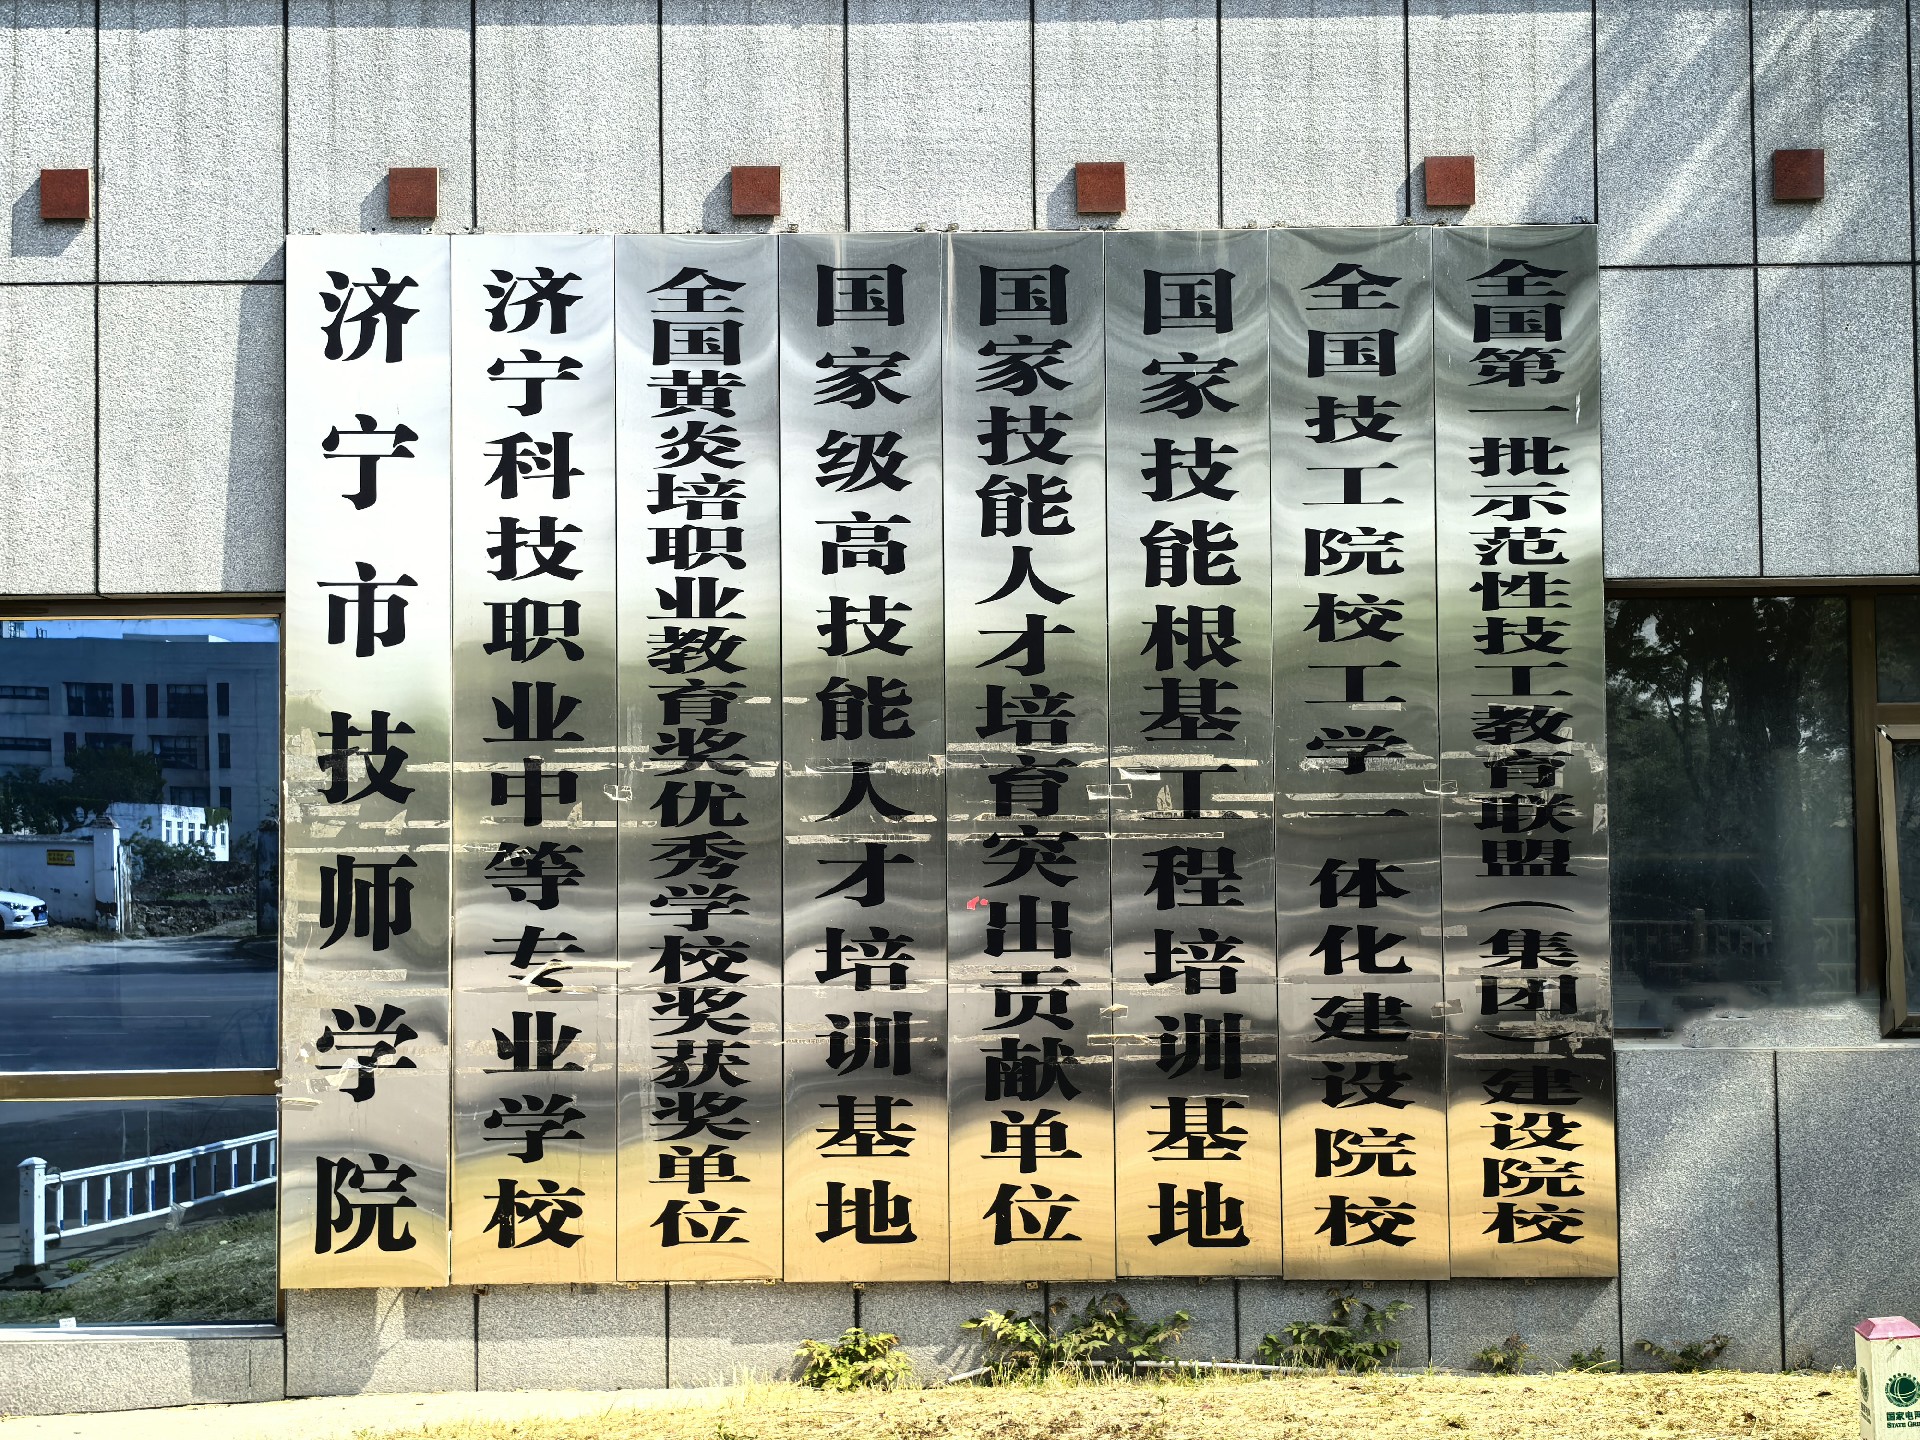 济宁市技师学院
济宁科技职业中等专业学校
全国黄炎培职业教育奖优秀学校奖获奖单位
国家级高技能人才培训基地
国家技能人才培育突出贡献单位
国家技能根基工程培训基地
全国技工院校工学一体化建设院校
全国第一批示范性技工教育联盟（集团）建设院校
国家电网
STATE GRI